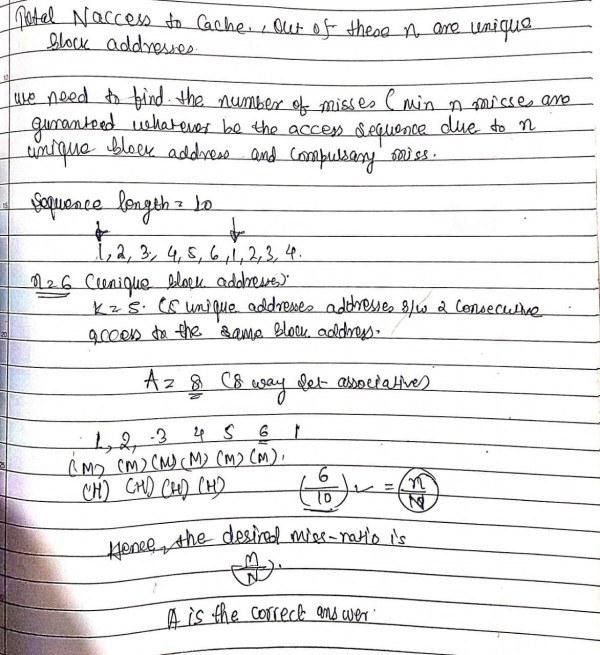 Total N access to Cache., Out of these n are unique
block addresses.
we need to find the number of misses (min n misses are
guranteed whatever be the access sequence due to n
unique block address and compulsary miss.
Sequence length = 10
1, 2, 3, 4, 5, 6, 1, 2, 3, 4.
n=6 (unique block addresses).
K=5. (5 unique addresses addresses b/w 2 consecutive
access to the same block address.
A = 8 (8 way set associative)
1, 2, 3 4 5 6 1
(M) (M) (M) (M) (M) (M),
(H) (H) (H) (H) (6/10) = (n/N)
Hence, the desired miss-ratio is
(n/N).
A is the correct answer.